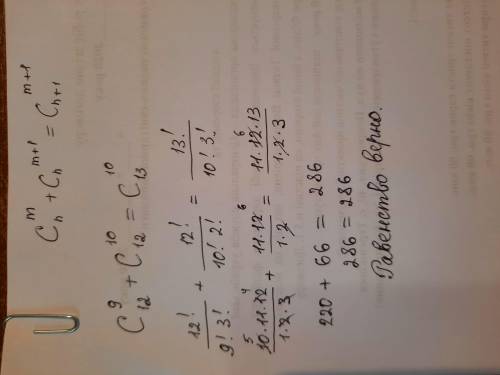 C_n^m + C_n^{m+1} = C_{n+1}^{m+1}
C_{12}^9 + C_{12}^{10} = C_{13}^{10}
12!/(9! 3!) + 12!/(10! 2!) = 13!/(10! 3!)
10·11·12/(1·2·3) + 11·12/(1·2) = 11·12·13/(1·2·3)
220 + 66 = 286
286 = 286
Равенство верно.